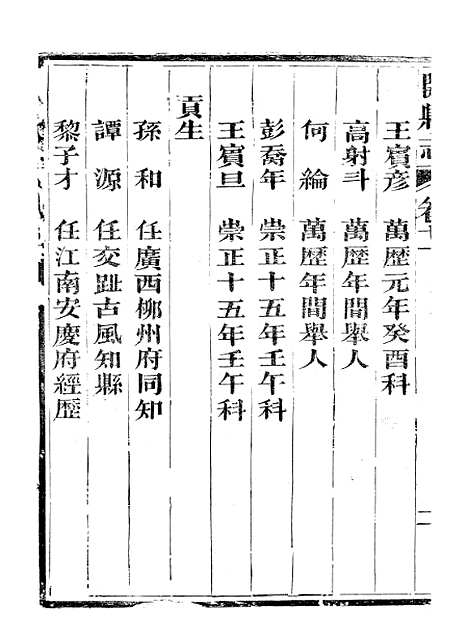 開縣志 卷十
王賓彥 萬歷元年癸酉科
高射斗 萬歷年間舉人
何綸 萬歷年間舉人
彭喬年 崇正十五年壬午科
王賓旦 崇正十五年壬午科
貢生
孫和 任廣西柳州府同知
譚源 任交趾古風知縣
黎子才 任江南安慶府經歷